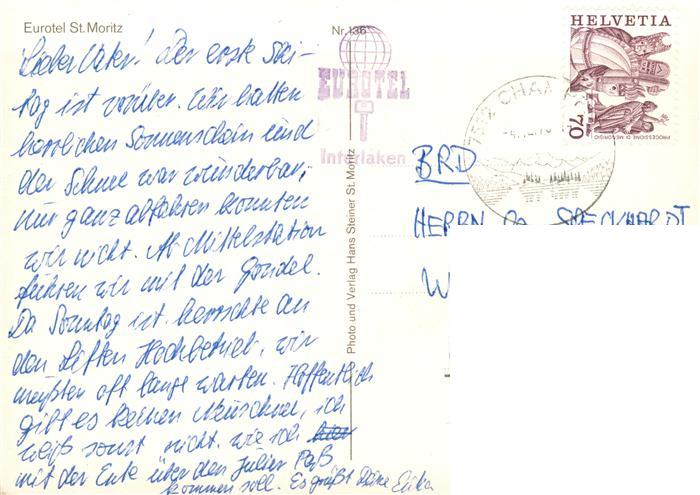 Eurotel St. Moritz
Nr. 136
Lieber Vater! Der erste Ski-
tag ist vorüber. Wir hatten
herrlichen Sonnenschein und
der Schnee war wunderbar,
nur ganz abfahren konnten
wir nicht. Ab Mittelstation
fuhren wir mit der Gondel.
Da Sonntag ist, herrschte an
den Liften Hochbetrieb, wir
mußten oft lange warten. Hoffentlich
gibt es keinen Neuschnee, ich
weiß sonst nicht, wie ich hier
mit der Ente über den Julier Paß
kommen soll. Es grüßt Deine Erika
EUROTEL
Interlaken
Photo und Verlag Hans Steiner St. Moritz
HELVETIA
70
7512 CHAM
BRD
HERRN SPECKHARDT
W